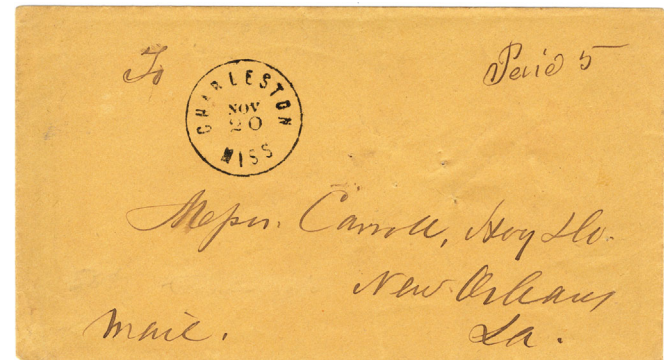 To
Paid 5
CHARLESTON
NOV
20
MISS
Messrs. Carroll, Hoy & Co.
New Orleans
La.
Mail.